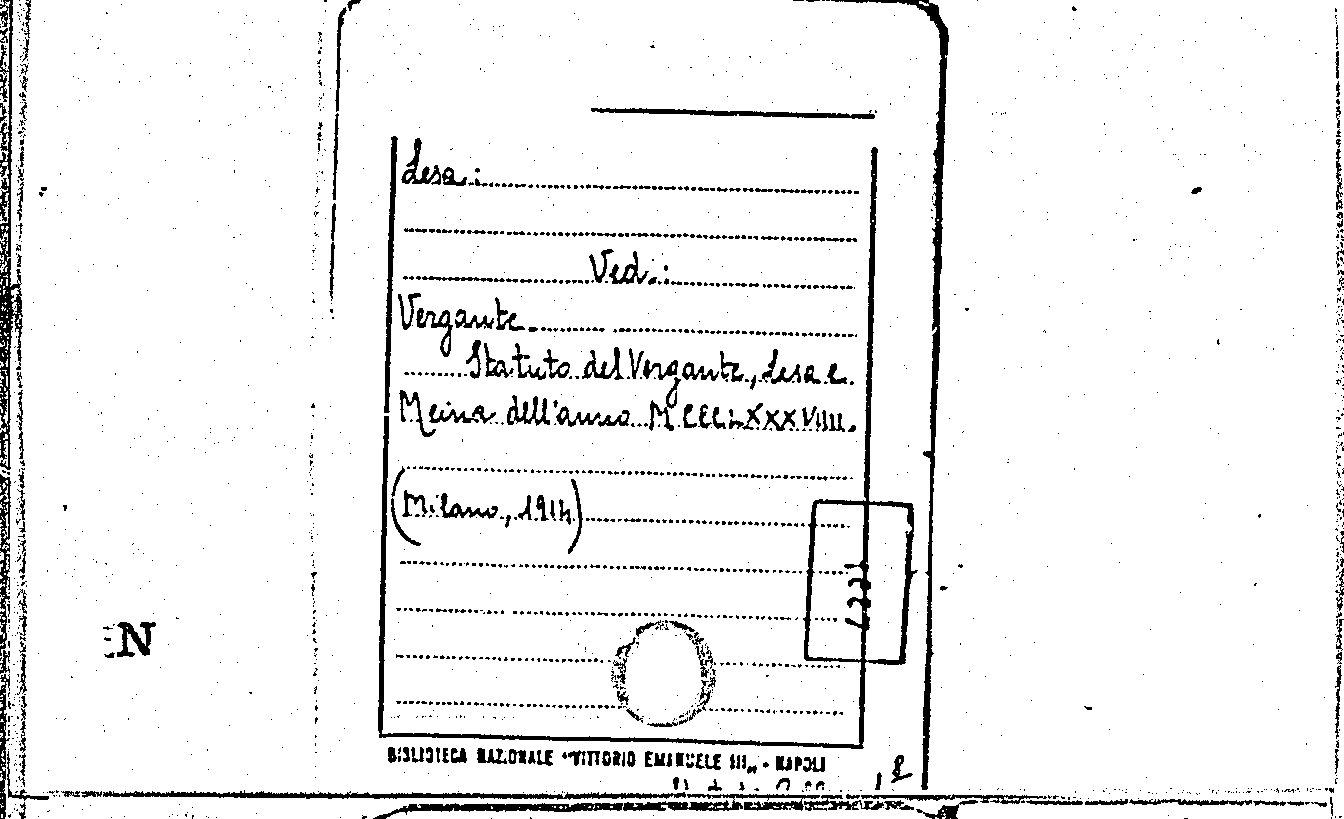 Lesa:
Ved.:
Vergante.
Statuto del Vergante, Lesa e
Meina dell'anno MCCCLXXXVIIII.
(Milano, 1914)
EN
BIBLIOTECA NAZIONALE "VITTORIO EMANUELE III„ - NAPOLI